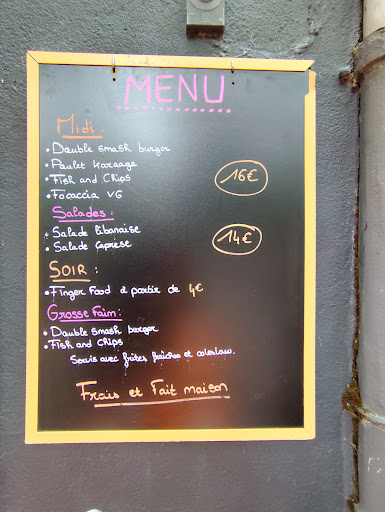 MENU
Midi :
• Double smash burger
• Poulet Karaage
• Fish and Chips
• Focaccia VG
16€
Salades :
• Salade libanaise
• Salade Caprese
14€
SOIR :
• Finger Food à partir de 4€
Grosse Faim :
• Double smash burger
• Fish and chips
Servis avec frites fraîches et coleslaw.
Frais et Fait maison